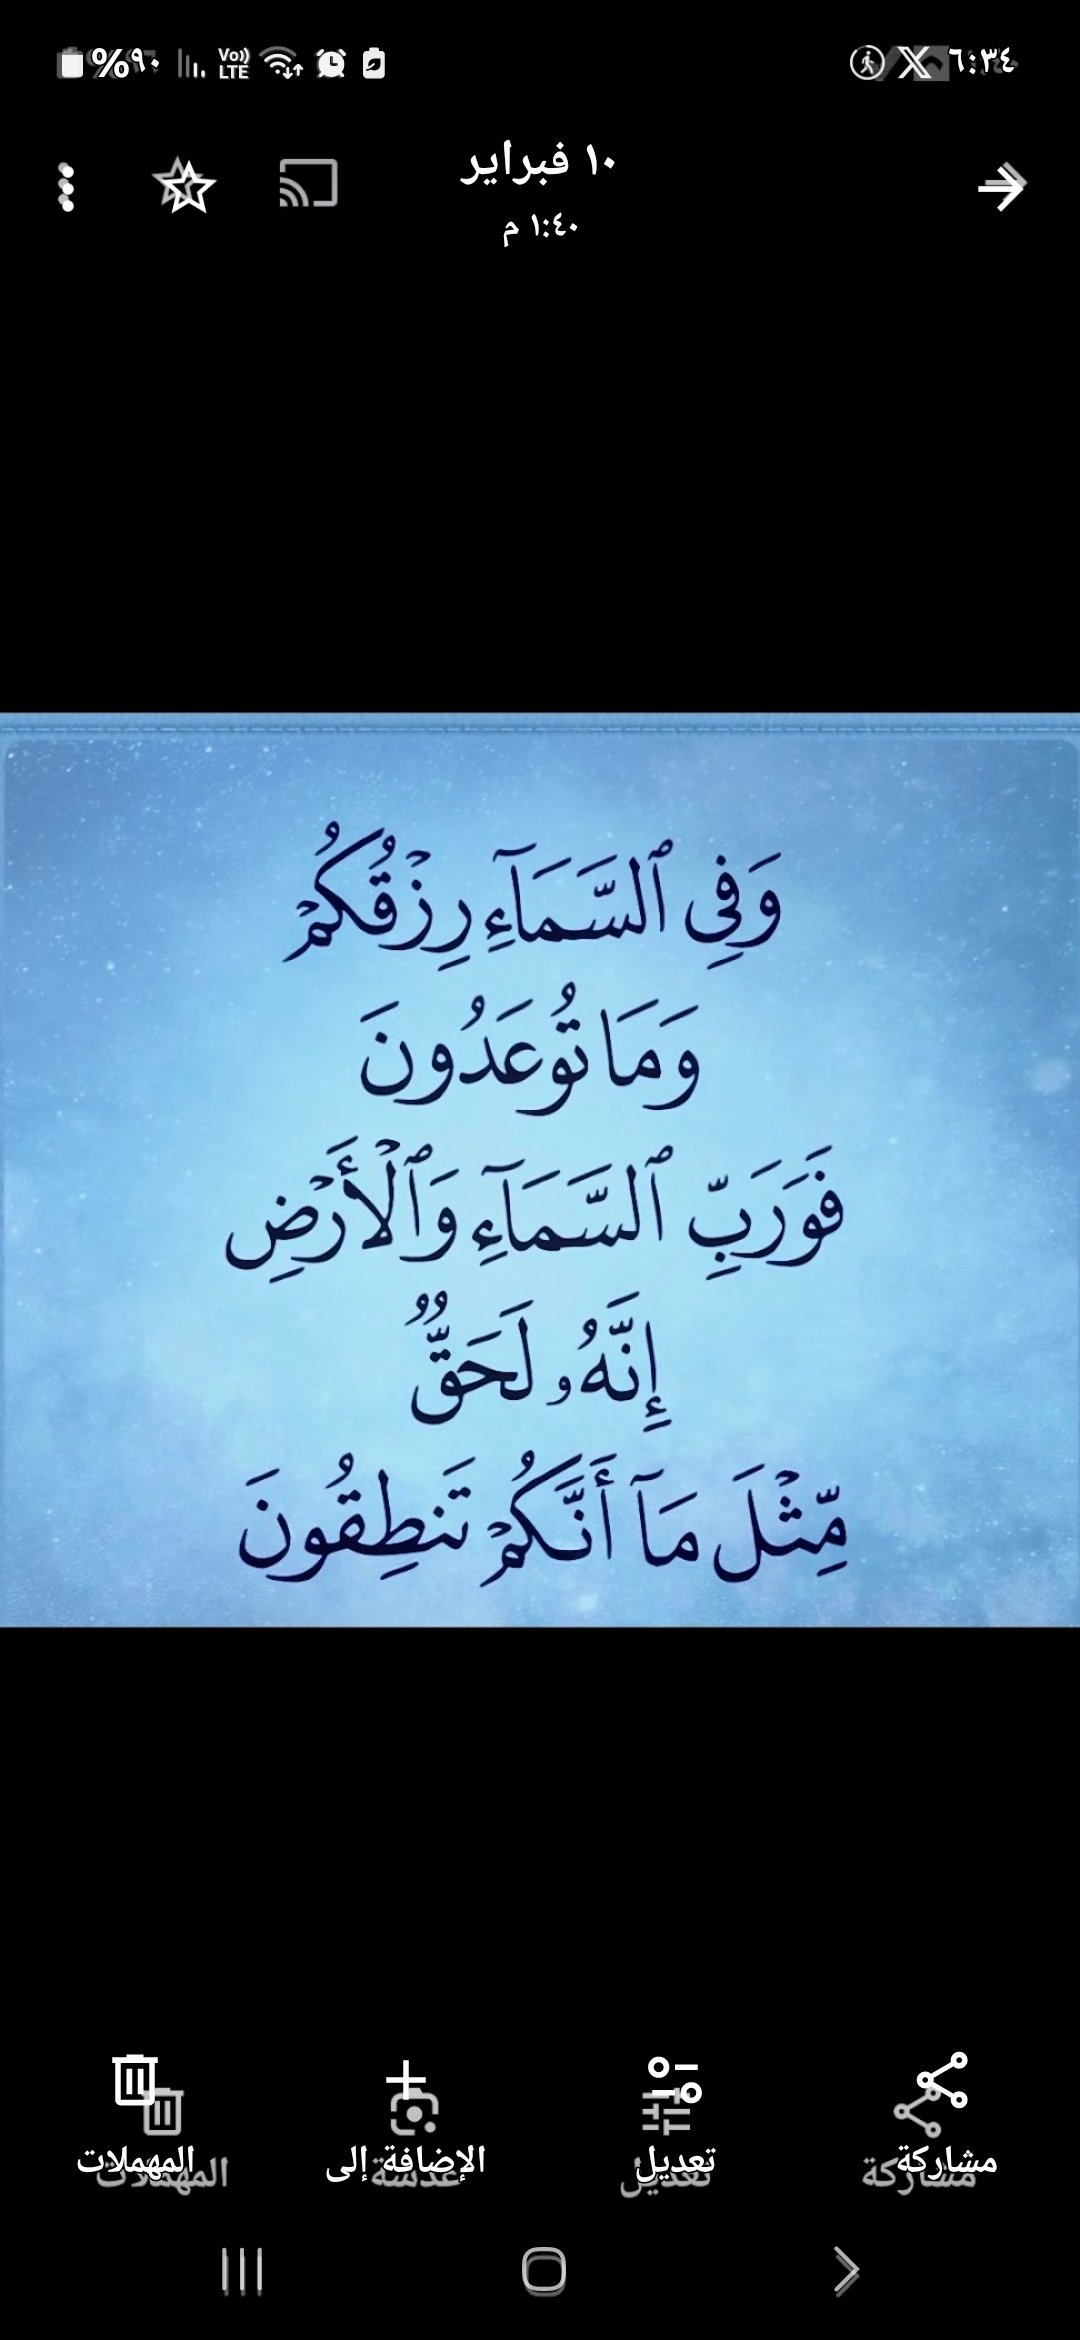 ٦:٣٤
VoLTE ٩٠%
١٠ فبراير
١:٤٠ م
وَفِى ٱلسَّمَآءِ رِزۡقُكُمۡ
وَمَا تُوعَدُونَ
فَوَرَبِّ ٱلسَّمَآءِ وَٱلۡأَرۡضِ
إِنَّهُۥ لَحَقّٞ
مِّثۡلَ مَآ أَنَّكُمۡ تَنطِقُونَ
مشاركة تعديل الإضافة إلى المهملات
مشاركة تعديل عدسة المهملات